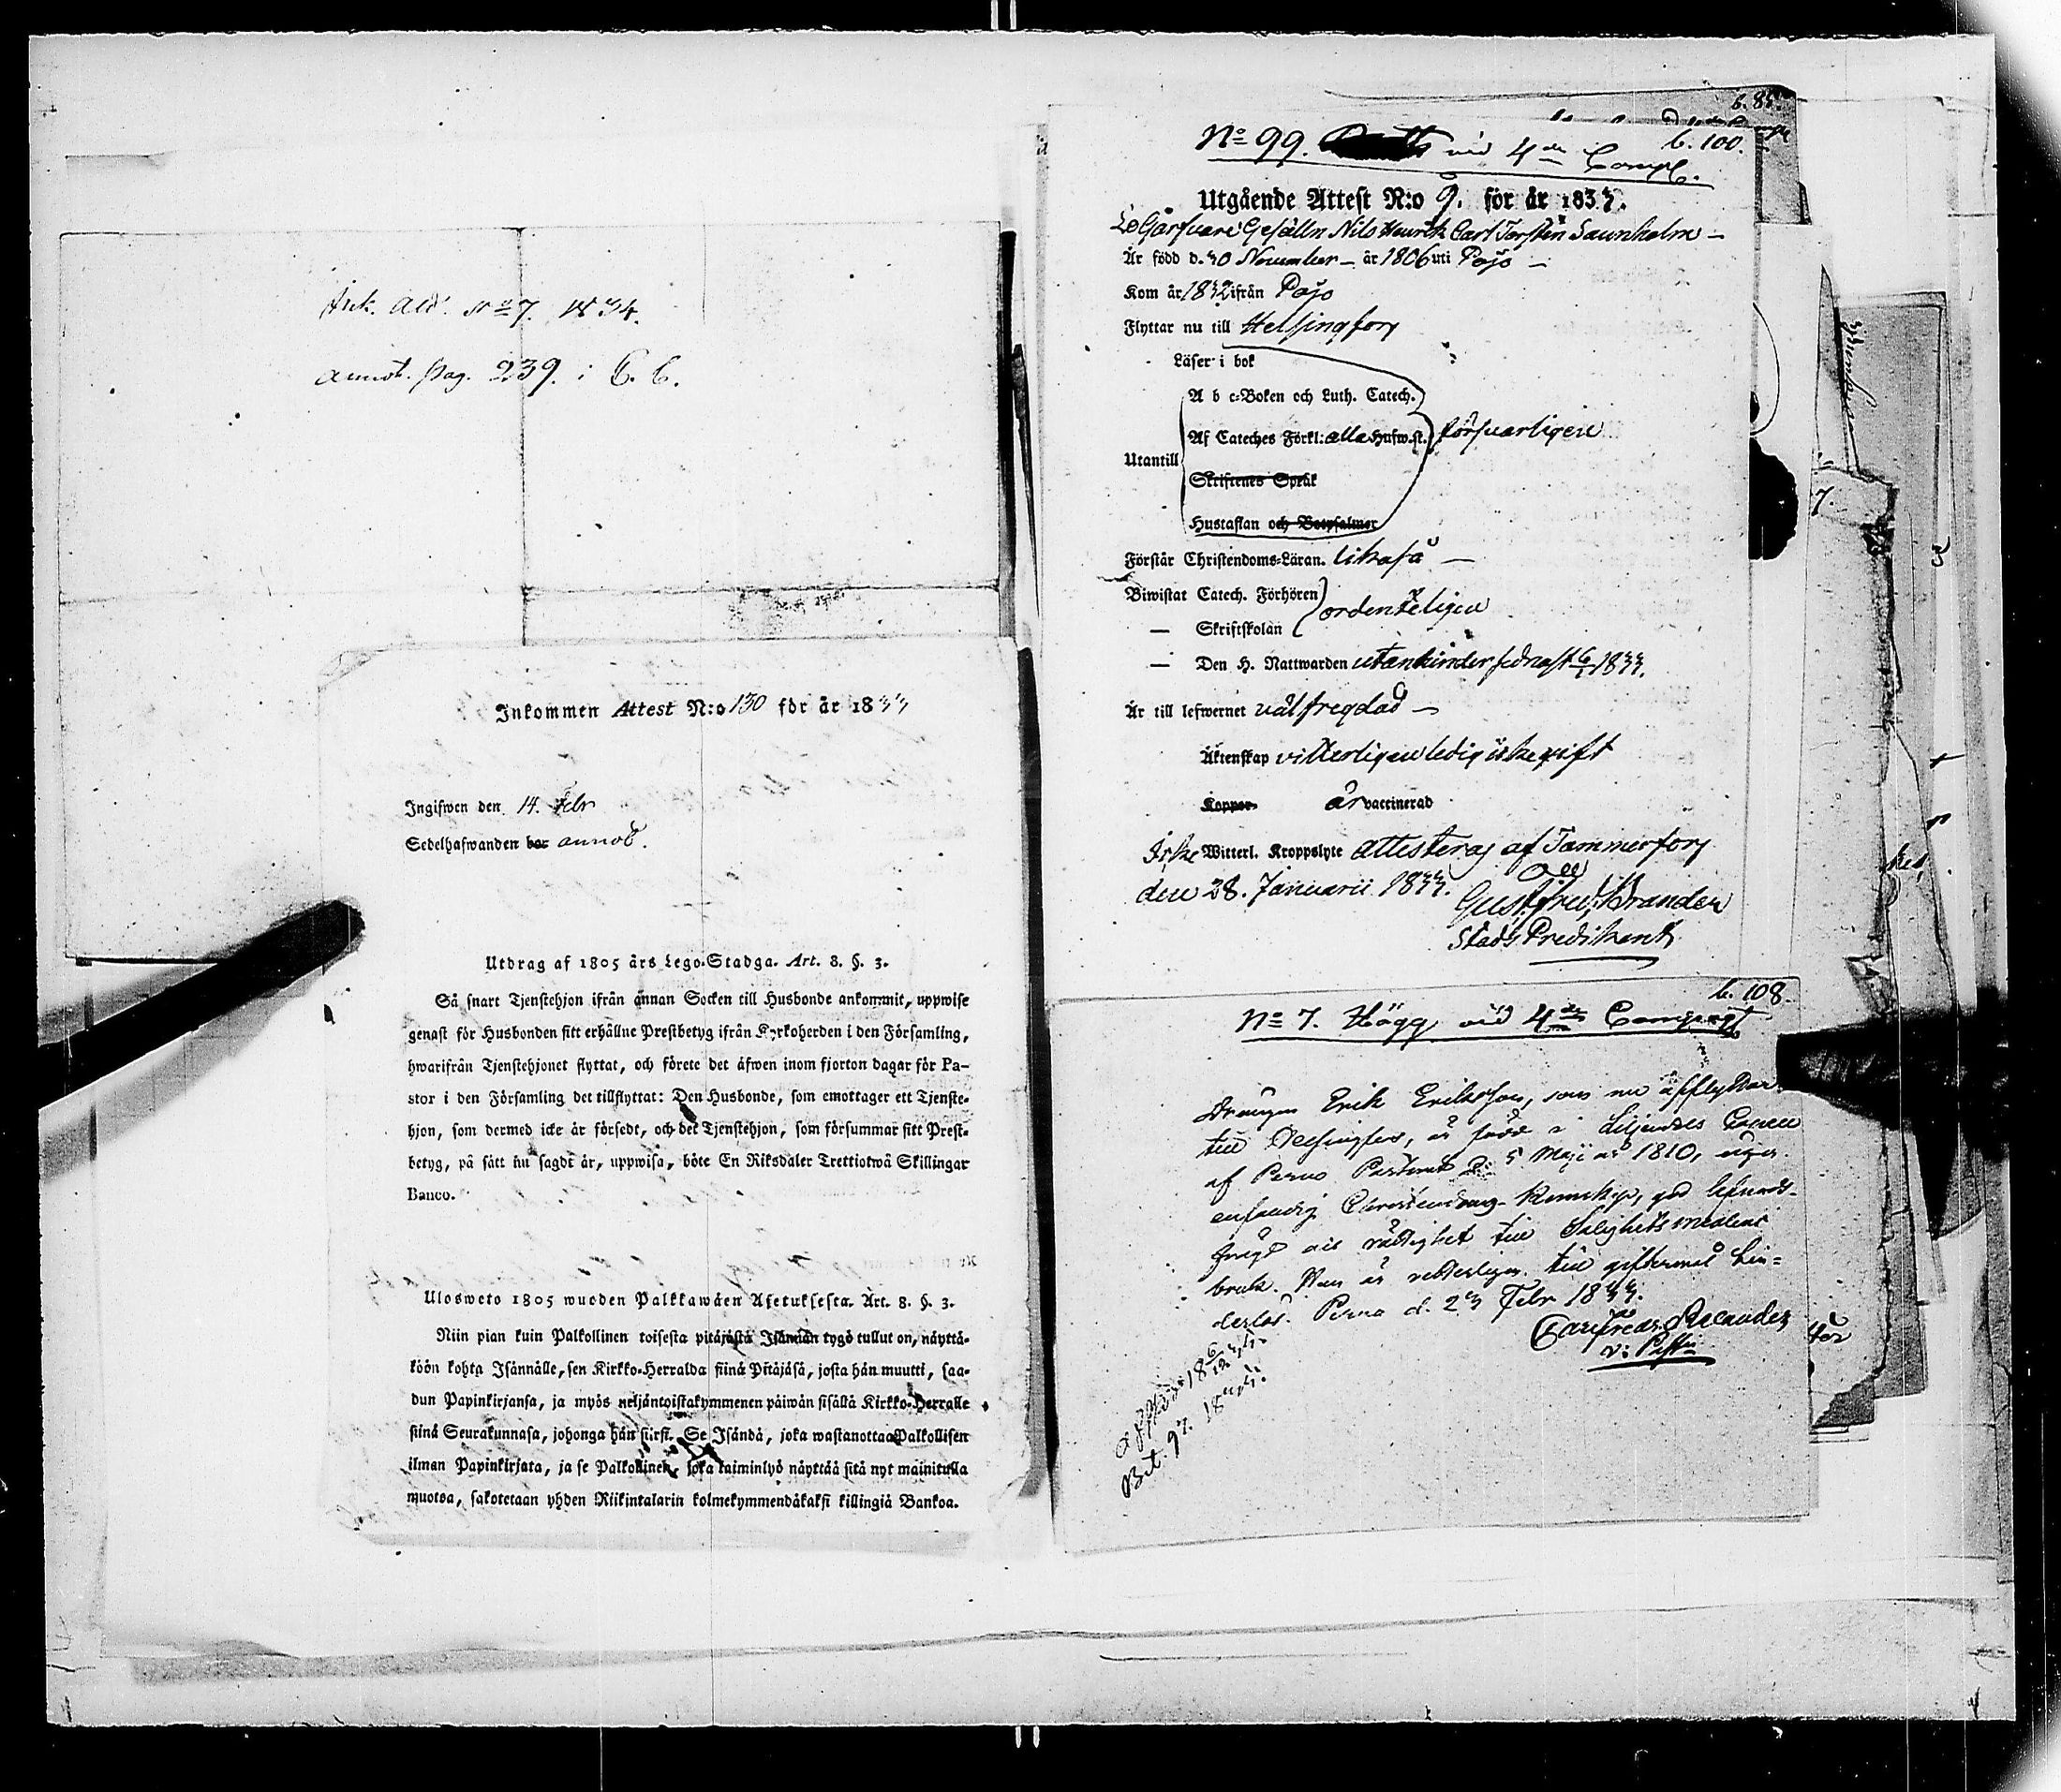 Ank. Att. No 7. 1834.
annot. pag. 239. i C. B.
Inkommen Attest N:o 130 för år 1833
Ingifwen den 14. Febr
Sedelhafwanden bor annot.
Utdrag af 1805 års Lego-Stadga. Art. 8. §. 3.
Så snart Tjenstehjon ifrån annan Socken till Husbonde ankommit, uppwise
genast för Husbonden sitt erhållne Prestbetyg ifrån Kyrkoherden i den Församling,
hwarifrån Tjenstehjonet flyttat, och förete det äfwen inom fjorton dagar för Pa-
stor i den Församling det tillflyttat: Den Husbonde, som emottager ett Tjenste-
hjon, som dermed icke är försedt, och det Tjenstehjon, som försummar sitt Prest-
betyg, på sätt nu sagdt är, uppwisa, böte En Riksdaler Trettiotwå Skillingar
Banco.
Ulosweto 1805 wuoden Palkkawäen Asetuksesta. Art. 8. §. 3.
Niin pian kuin Palkollinen toisesta pitäjästä Isännän tygö tullut on, näyttä-
köön kohta Isännälle, sen Kirkko-Herralda siinä Pitäjäsä, josta hän muutti, saa-
dun Papinkirjansa, ja myös neljäntoistakymmenen päiwän sisällä Kirkko-Herralle
siinä Seurakunnasa, johonga hän siirsi. Se Isändä, joka wastanottaa Palkollisen
ilman Papinkirjata, ja se Palkollinen, joka laiminlyö näyttää sitä nyt mainitulla
muotoa, sakotetaan yhden Riikintalarin kolmekymmendäkaksi killingiä Bankoa.
b. 85.
b. 100.
No 99. vid 4de Comp.
Utgående Attest N:o 9. för år 1833.
Gesälln Nils Henrik Carl Torstén Saunholm —
Är född d. 30 November — år 1806 uti Pojo —
Kom år 1832 ifrån Pojo
Flyttar nu till Helsingfors
Läser i bok
A b c-Boken och Luth. Catech.
Af Cateches Förkl: alla Hufw.st. försvarligen
Utantill
Skriftenes Språk
Hustaflan och Botpsalmer
Förstår Christendoms-Läran. likaså —
Biwistat Catech. Förhören
ordenteligen
— Skriftskolan
— Den H. Nattwarden utan hinder sednast 6/1 1833.
Är till lefwernet välfregdad —
Äktenskap vitterligen ledig icke gift
Koppor är vaccinerad
Icke Witterl. Kroppslyte attesteras af Tammerfors
den 28. Januarii 1833.
Gust. Fred. Brander
Stads Predikant
b. 108.
No 7. Hägg vid 4de Compagt
Drängen Erik Eriksson, som nu afflyttar
till Helsingfors, är född i Liljendals Capell
af Perno Pastorat d: 5 Maji år 1810, eger
enfaldig Christendoms-Kunskap, god lefnads-
fregd och rättighet till Salighets medlens
bruk. Han är vetterligen till giftermål hin-
derlös. Perno d. 23 Febr 1833.
v: Pastor
Bet. 97.